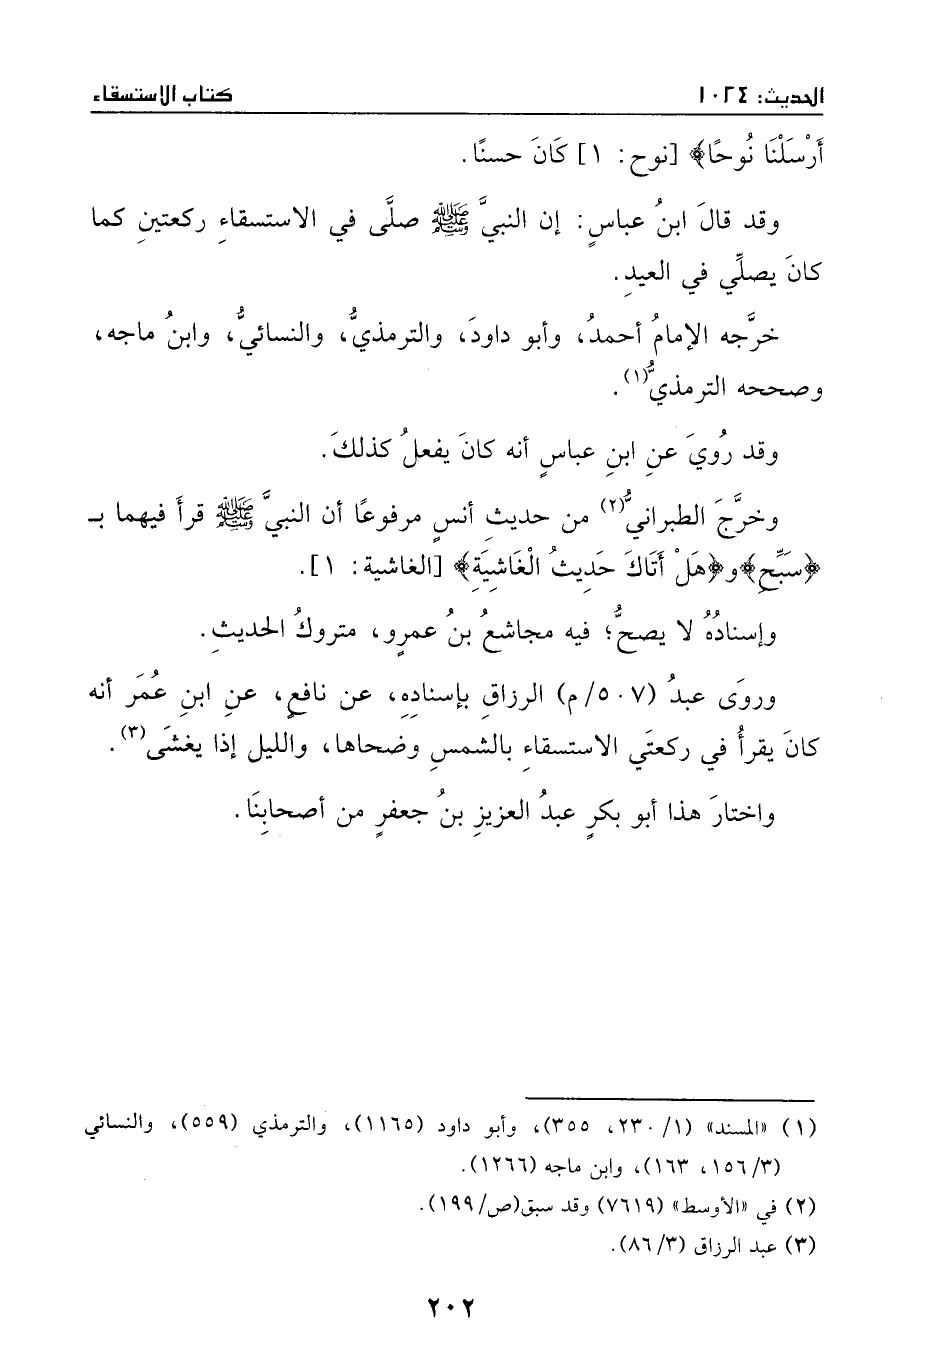 الحديث: ١٠٢٤
كتاب الاستسقاء
أَرْسَلْنَا نُوحًا﴾ [نوح: ١] كَانَ حسنًا.
وقد قالَ ابنُ عباسٍ: إن النبيَّ ﷺ صلَّى في الاستسقاءِ ركعتينِ كما
كانَ يصلِّي في العيدِ.
خرَّجه الإمامُ أحمدُ، وأبو داودَ، والترمذيُّ، والنسائيُّ، وابنُ ماجه،
وصححه الترمذيُّ(١).
وقد رُويَ عنِ ابنِ عباسٍ أنه كانَ يفعلُ كذلكَ.
وخرَّجَ الطبرانيُّ(٢) من حديثِ أنسٍ مرفوعًا أن النبيَّ ﷺ قرأَ فيهما بـ
﴿سَبِّحِ﴾ و﴿هَلْ أَتَاكَ حَدِيثُ الْغَاشِيَةِ﴾ [الغاشية: ١].
وإسنادُهُ لا يصحُّ؛ فيه مجاشعُ بنُ عمرٍو، متروكُ الحديثِ.
وروَى عبدُ (٥٠٧/م) الرزاقِ بإسنادِهِ، عن نافعٍ، عنِ ابنِ عُمَر أنه
كانَ يقرأُ في ركعتَي الاستسقاءِ بالشمسِ وضحاها، والليل إذا يغشَى(٣).
واختارَ هذا أبو بكرٍ عبدُ العزيزِ بنُ جعفرٍ من أصحابِنَا.
(١) «المسند» (١/ ٢٣٠، ٣٥٥)، وأبو داود (١١٦٥)، والترمذي (٥٥٩)، والنسائي
(٣/ ١٥٦، ١٦٣)، وابن ماجه (١٢٦٦).
(٢) في «الأوسط» (٧٦١٩) وقد سبق(ص/١٩٩).
(٣) عبد الرزاق (٣/ ٨٦).
٢٠٢